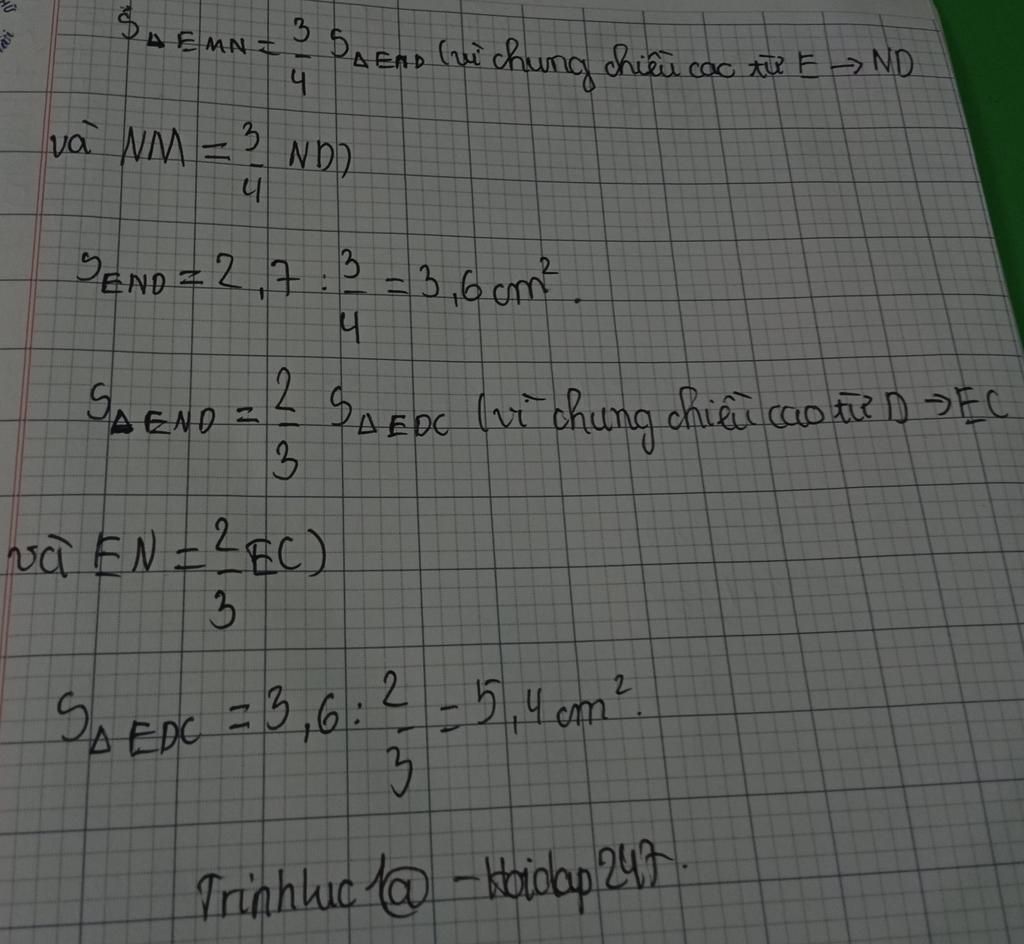 S△EMN = 3/4 S△END (vì chung chiều cac từ E → ND
và NM = 3/4 ND)
SEND = 2,7 : 3/4 = 3,6 cm².
S△END = 2/3 S△EDC (vì chung chiều cao từ D → EC
và EN = 2/3 EC)
S△EDC = 3,6 : 2/3 = 5,4 cm².
Trinhluc1@ - Hoidap247.